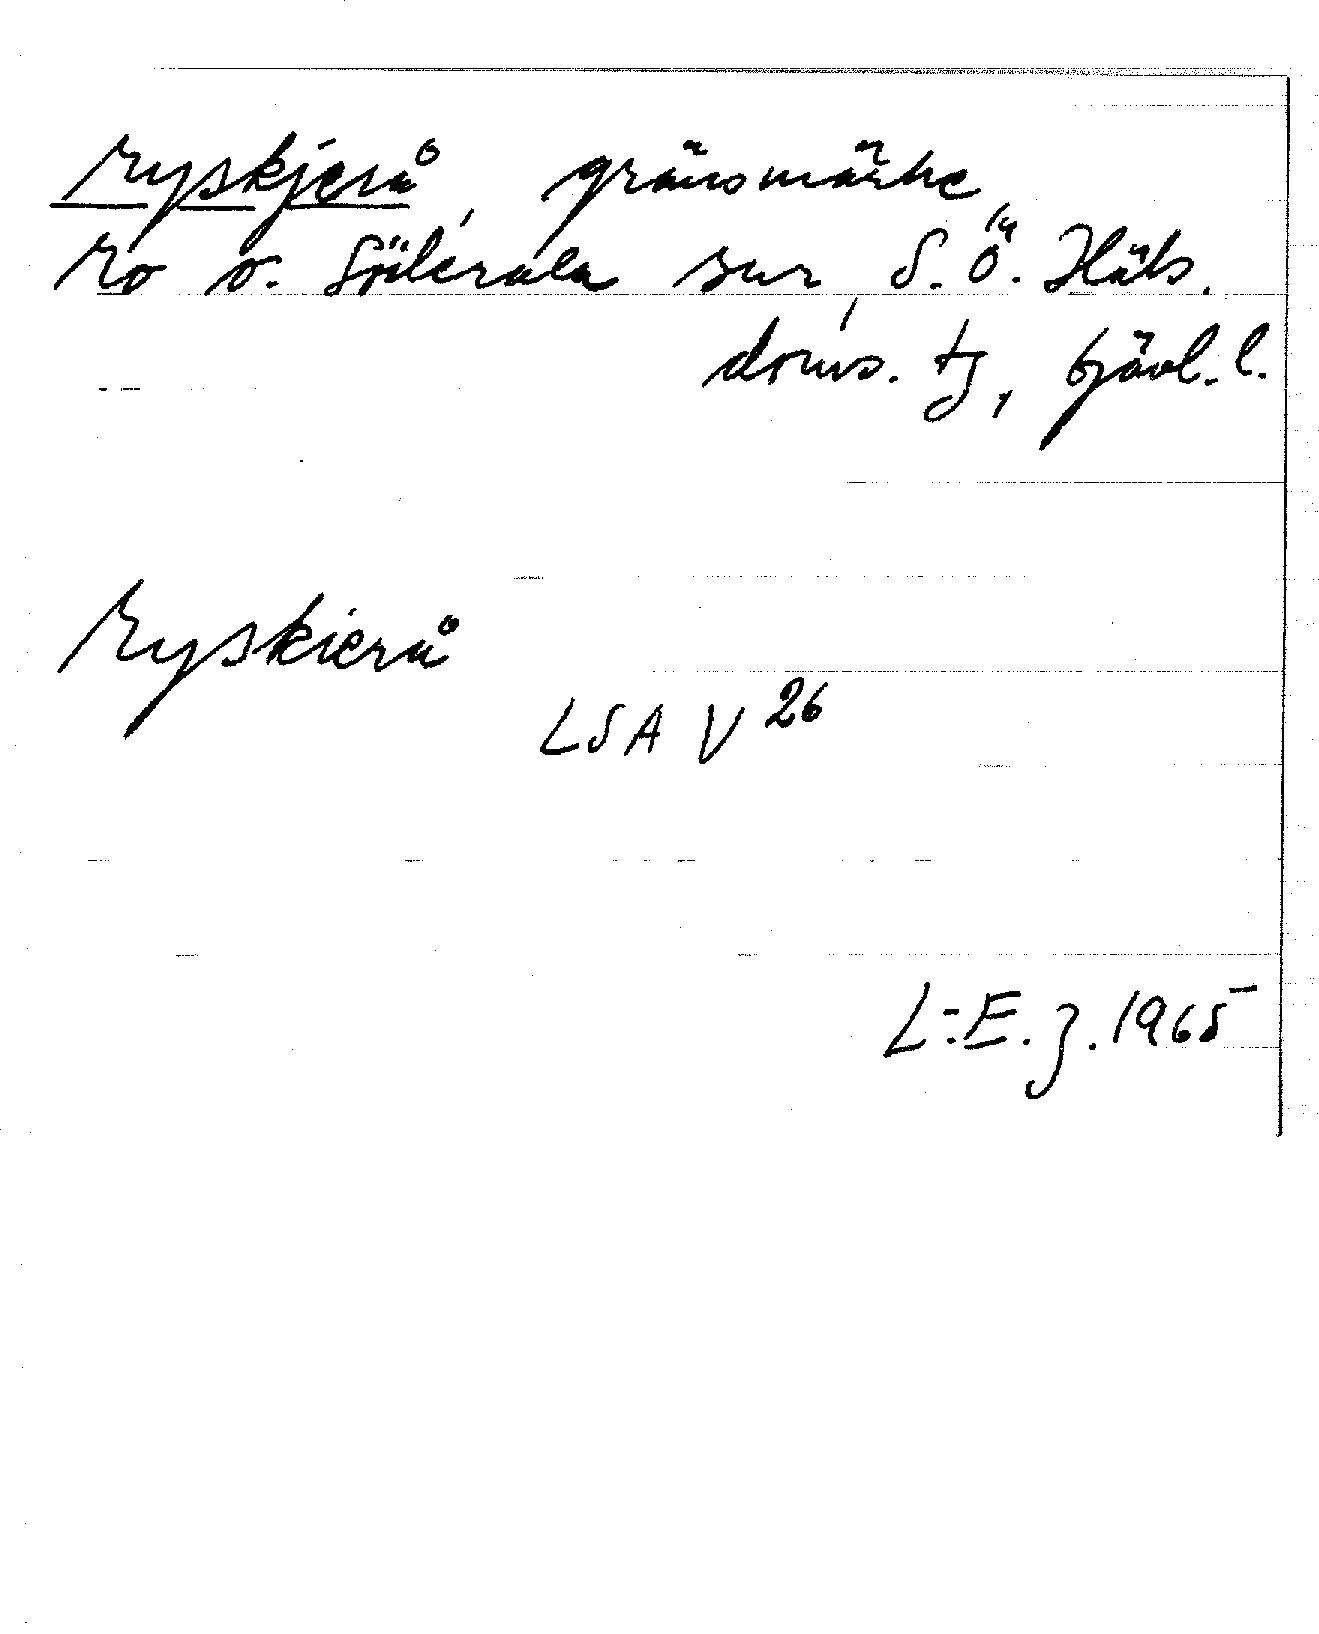 Ryskjerå, gränsmärke
Ro o. Söderala snr, S.Ö. Häls.
doms. tj, Gävl. l.
Ryskierå
LSA V 26
L:E. J. 1965